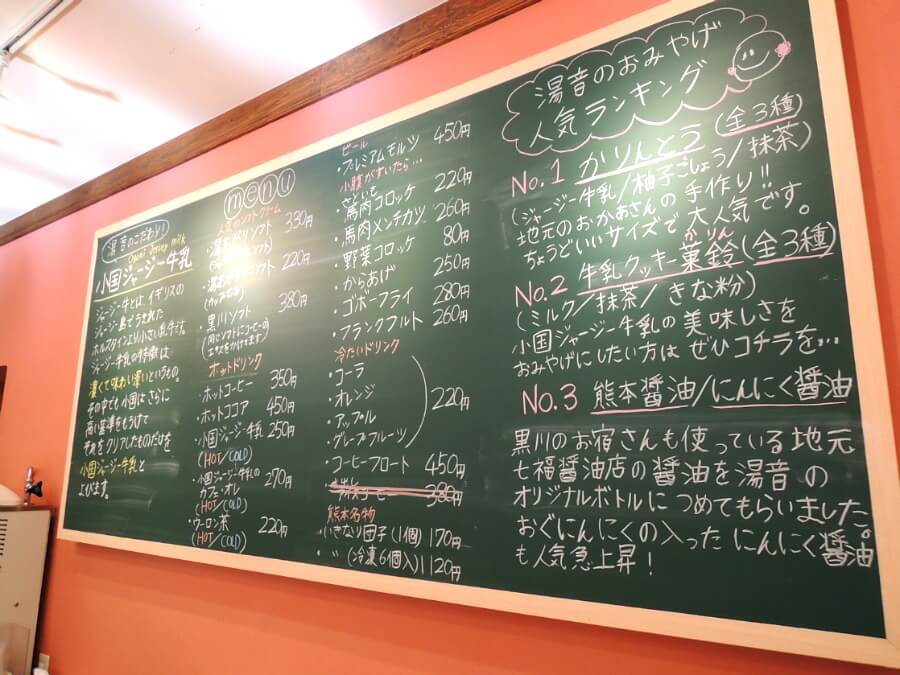 湯音のこだわり!
Oguni Jersey milk
小国ジャージー牛乳
ジャージー牛とは、イギリスの
ジャージー島でうまれた
ホルスタインより小さい乳牛です。
ジャージー牛乳の特徴は
濃くて味わい深いというもの。
その中でも小国はさらに
高い基準をもうけて
それをクリアしたものだけを
小国ジャージー牛乳と
よびます。
menu
人気のソフトクリーム
ソフト 330円
ソフト 220円
・黒川ソフト 380円
ホットドリンク
・ホットコーヒー 350円
・ホットココア 450円
・小国ジャージー牛乳 250円
(HOT/COLD)
・小国ジャージー牛乳の
カフェ・オレ 270円
(HOT/COLD)
・ウーロン茶 220円
(HOT/COLD)
ビール
・プレミアムモルツ 450円
小腹がすいたら…
・馬肉コロッケ 220円
・馬肉メンチカツ 260円
・野菜コロッケ 80円
・からあげ 250円
・ゴボーフライ 280円
・フランクフルト 260円
冷たいドリンク
・コーラ
・オレンジ
・アップル
・グレープフルーツ
220円
・コーヒーフロート 450円
380円
熊本名物
・いきなり団子(1個) 170円
・〃 (冷凍6個入) 1120円
湯音のおみやげ
人気ランキング
No.1 かりんとう (全3種)
(ジャージー牛乳/柚子ごしょう/抹茶)
地元のおかあさんの手作り!!
ちょうどいいサイズで大人気です。
No.2 牛乳クッキー菓鈴(全3種)
かりん
(ミルク/抹茶/きな粉)
小国ジャージー牛乳の美味しさを
おみやげにしたい方はぜひコチラを…
No.3 熊本醤油/にんにく醤油
黒川のお宿さんも使っている地元
七福醤油店の醤油を湯音の
オリジナルボトルにつめてもらいました。
おぐにんにくの入ったにんにく醤油
も人気急上昇!